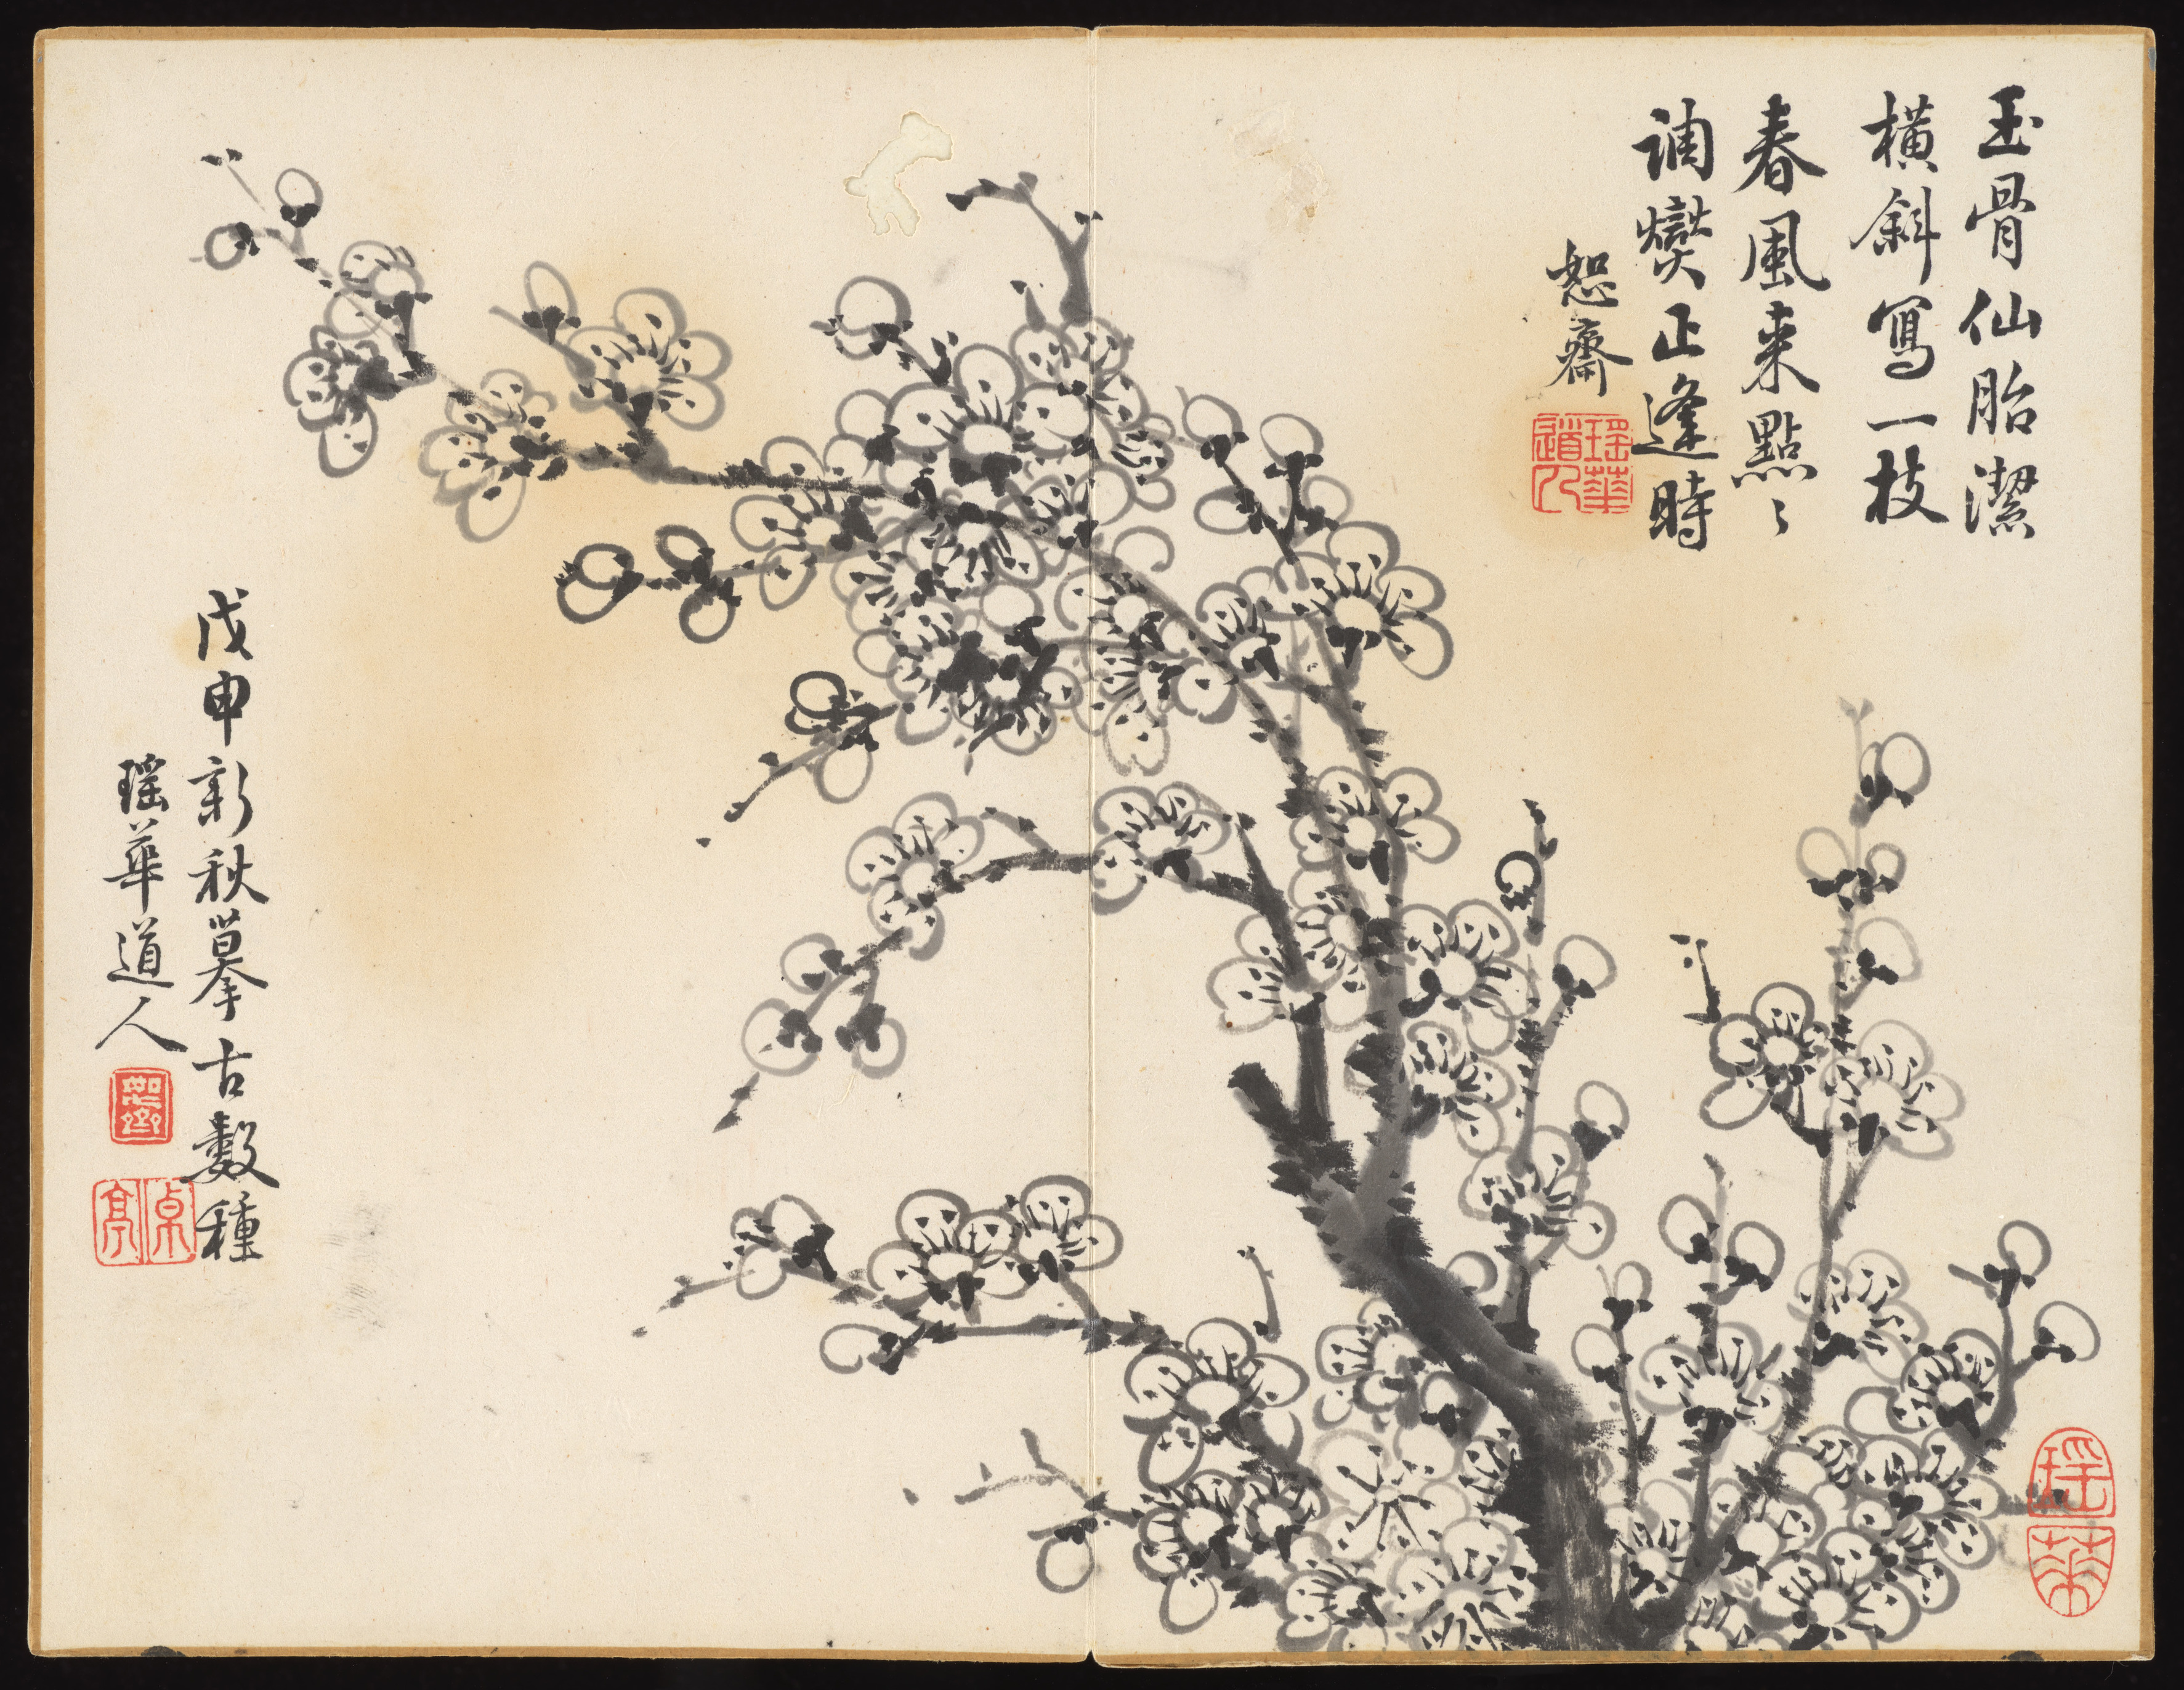 玉骨仙胎潔
橫斜寫一枝
春風来點〻
調燮正逢時
恕齋
瑤華道人
戊申新秋摹古數種
瑤華道人
恕齋
瑤華